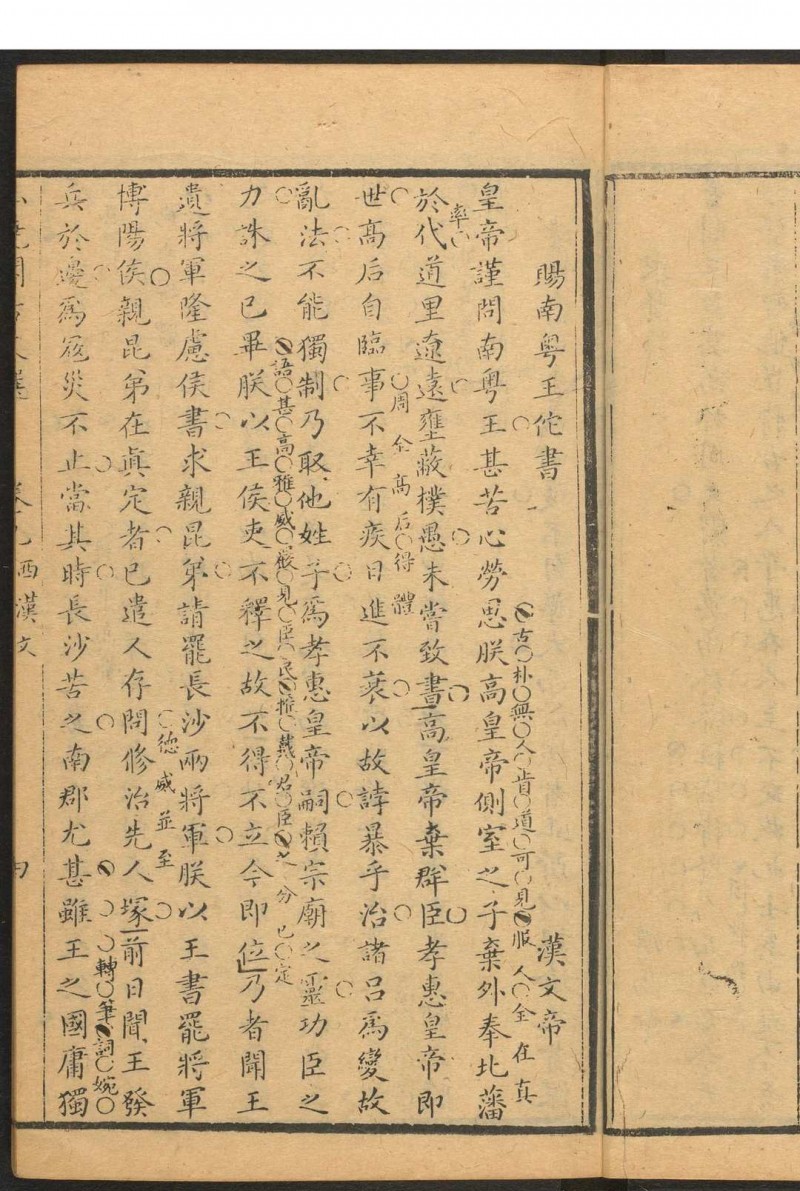 賜南粤王佗書　漢文帝
古朴無人肯道可見服人全在真率
皇帝謹問南粤王甚苦心勞思朕高皇帝側室之子棄外奉北藩
於代道里遼遠壅蔽樸愚未嘗致書高皇帝棄群臣孝惠皇帝即
周全高后得體
世高后自臨事不幸有疾日進不衰以故誖暴乎治諸呂爲變故
亂法不能獨制乃取他姓子爲孝惠皇帝嗣賴宗廟之靈功臣之
語甚高雅威嚴見臣民推戴君臣之分已定
力誅之已畢朕以王侯吏不釋之故不得不立今即位乃者聞王
遺將軍隆慮侯書求親昆弟請罷長沙兩將軍朕以王書罷將軍
德威並至
博陽侯親昆弟在眞定者已遣人存問修治先人塚前日聞王發
轉筆詞婉
兵於邊爲寇災不止當其時長沙苦之南郡尤甚雖王之國庸獨
西漢文